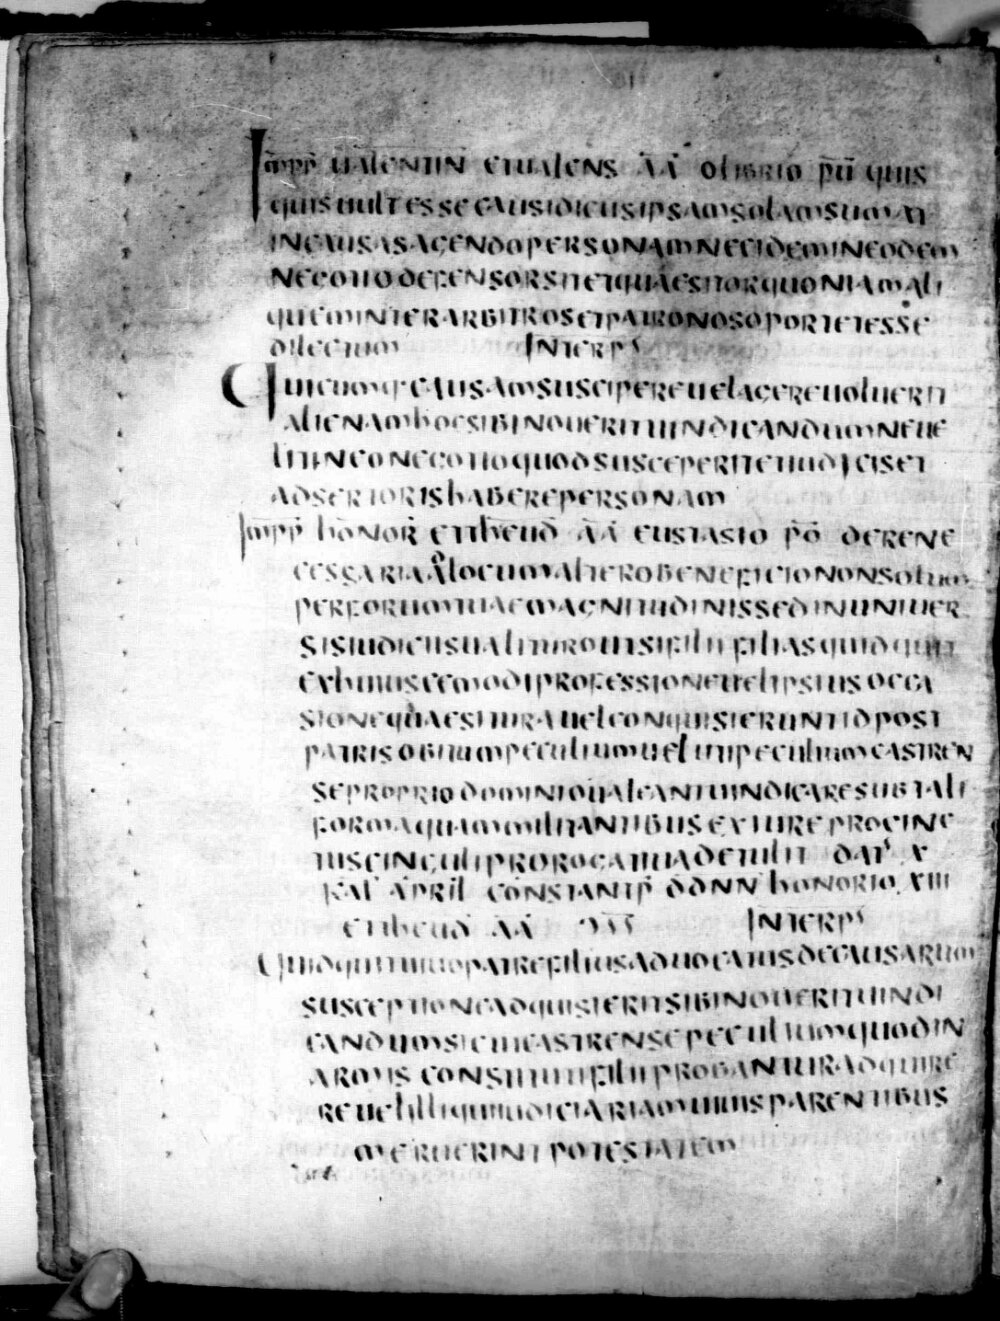 Impp̄ ualentin etualens ĀĀ olibrio p̄ū quis
quisuultessecausidicusipsamsolamsumat
incausasagendopersonamnecidemineodem
negotiodefensorsitetquaesitorquoniamali
queminterarbitrosetpatronosoportetesse
dilectum Interp̄
Quicumq·causamsuscipereuelagereuoluerit
alienamhocsibinoueritiuindicandumneue
litinnegotioquodsusceperitetiudiciset
adsertorishaberepersonam
Impp̄ honor ettheud ĀĀ eustasio p̄ō̄ derene
cessariaAlocumalterobeneficiononsolum
perfortumtuaemagnitudinissedinuniuer
sisiudicusualiturotusifilii filiasquidquit
exhuiuscemodiprofessioneuelipsiusocca
sionequaesiuerauelconquisieruntidpost
patrisobitumpeculiumueluitpeculiumcastren
seproprioominioualeantuindicaresubtali
formaquammilitantibusexiureprocinc
tuscingulipprorogatiuadetulit dat x
kal april constantp ddnn honorio xiii
ettheud ĀĀ conss Interp̄
Quidquituiuopatrefiliusaduocatusdecausarum
susceptioneadquisieritsibinoueritiuindi
candumsicutcastrensepeculiumquodin
armis constituti filii probanturadquire
reuelilliquiiudiciariamuiuisparentibus
meruerint potestatem